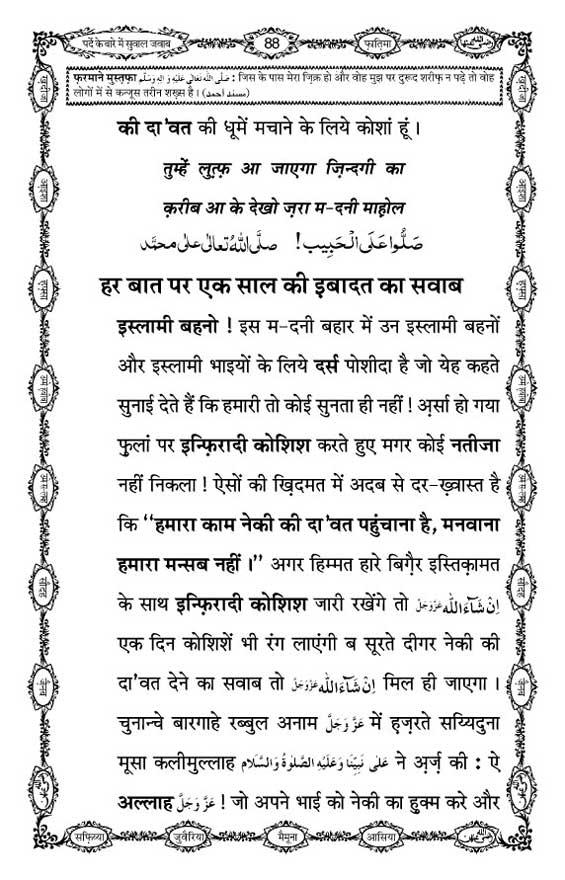 पर्दे के बारे में सुवाल जवाब
88
फ़ातिमा
फ़रमाने मुस्तफ़ा صَلَّى اللهُ تَعَالٰى عَلَيْهِ وَاٰلِهٖ وَسَلَّم : जिस के पास मेरा ज़िक्र हो और वोह मुझ पर दुरूद शरीफ़ न पढ़े तो वोह
लोगों में से कन्जूस तरीन शख़्स है । (مسند احمد)
की दा'वत की धूमें मचाने के लिये कोशां हूं ।
तुम्हें लुत्फ़ आ जाएगा ज़िन्दगी का
क़रीब आ के देखो ज़रा म-दनी माहोल
صَلُّوا عَلَى الْحَبِيب! صلَّى اللهُ تعالٰى على محمَّد
हर बात पर एक साल की इबादत का सवाब
इस्लामी बहनो ! इस म-दनी बहार में उन इस्लामी बहनों
और इस्लामी भाइयों के लिये दर्स पोशीदा है जो येह कहते
सुनाई देते हैं कि हमारी तो कोई सुनता ही नहीं ! अ़र्सा हो गया
फुलां पर इन्फ़िरादी कोशिश करते हुए मगर कोई नतीजा
नहीं निकला ! ऐसों की ख़िदमत में अदब से दर-ख़्वास्त है
कि ‘‘हमारा काम नेकी की दा'वत पहुंचाना है, मनवाना
हमारा मन्सब नहीं ।’’ अगर हिम्मत हारे बिग़ैर इस्तिक़ामत
के साथ इन्फ़िरादी कोशिश जारी रखेंगे तो اِنْ شَآءَ اللّٰه عَزَّوَجَلَّ
एक दिन कोशिशें भी रंग लाएंगी ब सूरते दीगर नेकी की
दा'वत देने का सवाब तो اِنْ شَآءَ اللّٰه عَزَّوَجَلَّ मिल ही जाएगा ।
चुनान्चे बारगाहे रब्बुल अनाम عَزَّوَجَلَّ में ह़ज़रते सय्यिदुना
मूसा कलीमुल्लाह عَلٰى نَبِيِّنَا وَعَلَيْهِ الصَّلٰوةُ وَالسَّلَام ने अ़र्ज़ की : ऐ
अल्लाह عَزَّوَجَلَّ ! जो अपने भाई को नेकी का हुक्म करे और
सफ़िय्या
जुवैरिया
मैमूना
आसिया